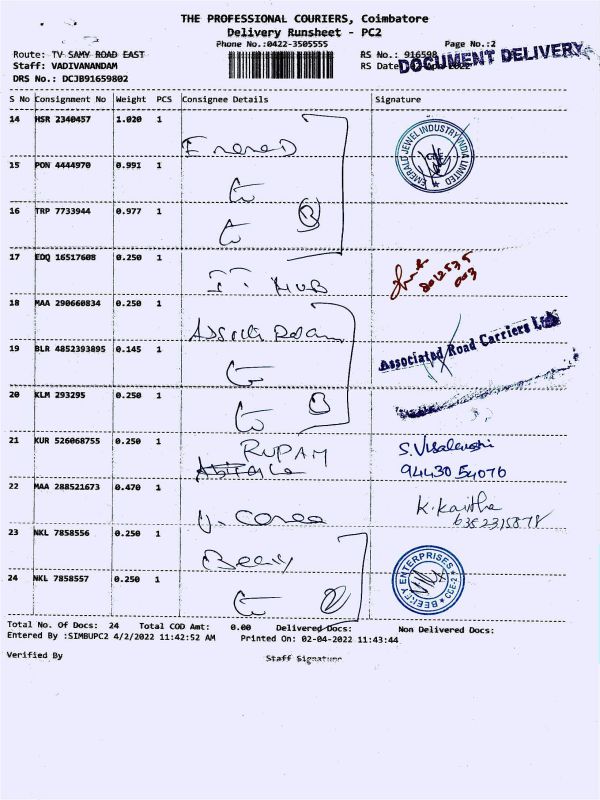 THE PROFESSIONAL COURIERS, Coimbatore
Delivery Runsheet - PC2
Phone No.:0422-3505555 Page No.:2
Route: TV SAMY ROAD EAST RS No.: 916598
Staff: VADIVANANDAM RS Date 2022
DOCUMENT DELIVERY
DRS No.: DCJB91659802
S No Consignment No Weight PCS Consignee Details Signature
14 HSR 2340457 1.020 1
EMERALD JEWEL INDUSTRY INDIA LIMITED
15 PON 4444970 0.991 1
16 TRP 7733944 0.977 1
17 EDQ 16517608 0.250 1 IT HUB
18 MAA 290660834 0.250 1
Associated Road Carriers Ltd
19 BLR 4852393895 0.145 1
20 KLM 293295 0.250 1
21 KUR 526068755 0.250 1 RUPAM S. Visalakshi
94430 54076
22 MAA 288521673 0.470 1 K. Kavitha
23 NKL 7858556 0.250 1
BEEKEY ENTERPRISES
CBE-2
24 NKL 7858557 0.250 1
Total No. Of Docs: 24 Total COD Amt: 0.00 Delivered Docs: Non Delivered Docs:
Entered By :SIMBUPC2 4/2/2022 11:42:52 AM Printed On: 02-04-2022 11:43:44
Verified By Staff Signature